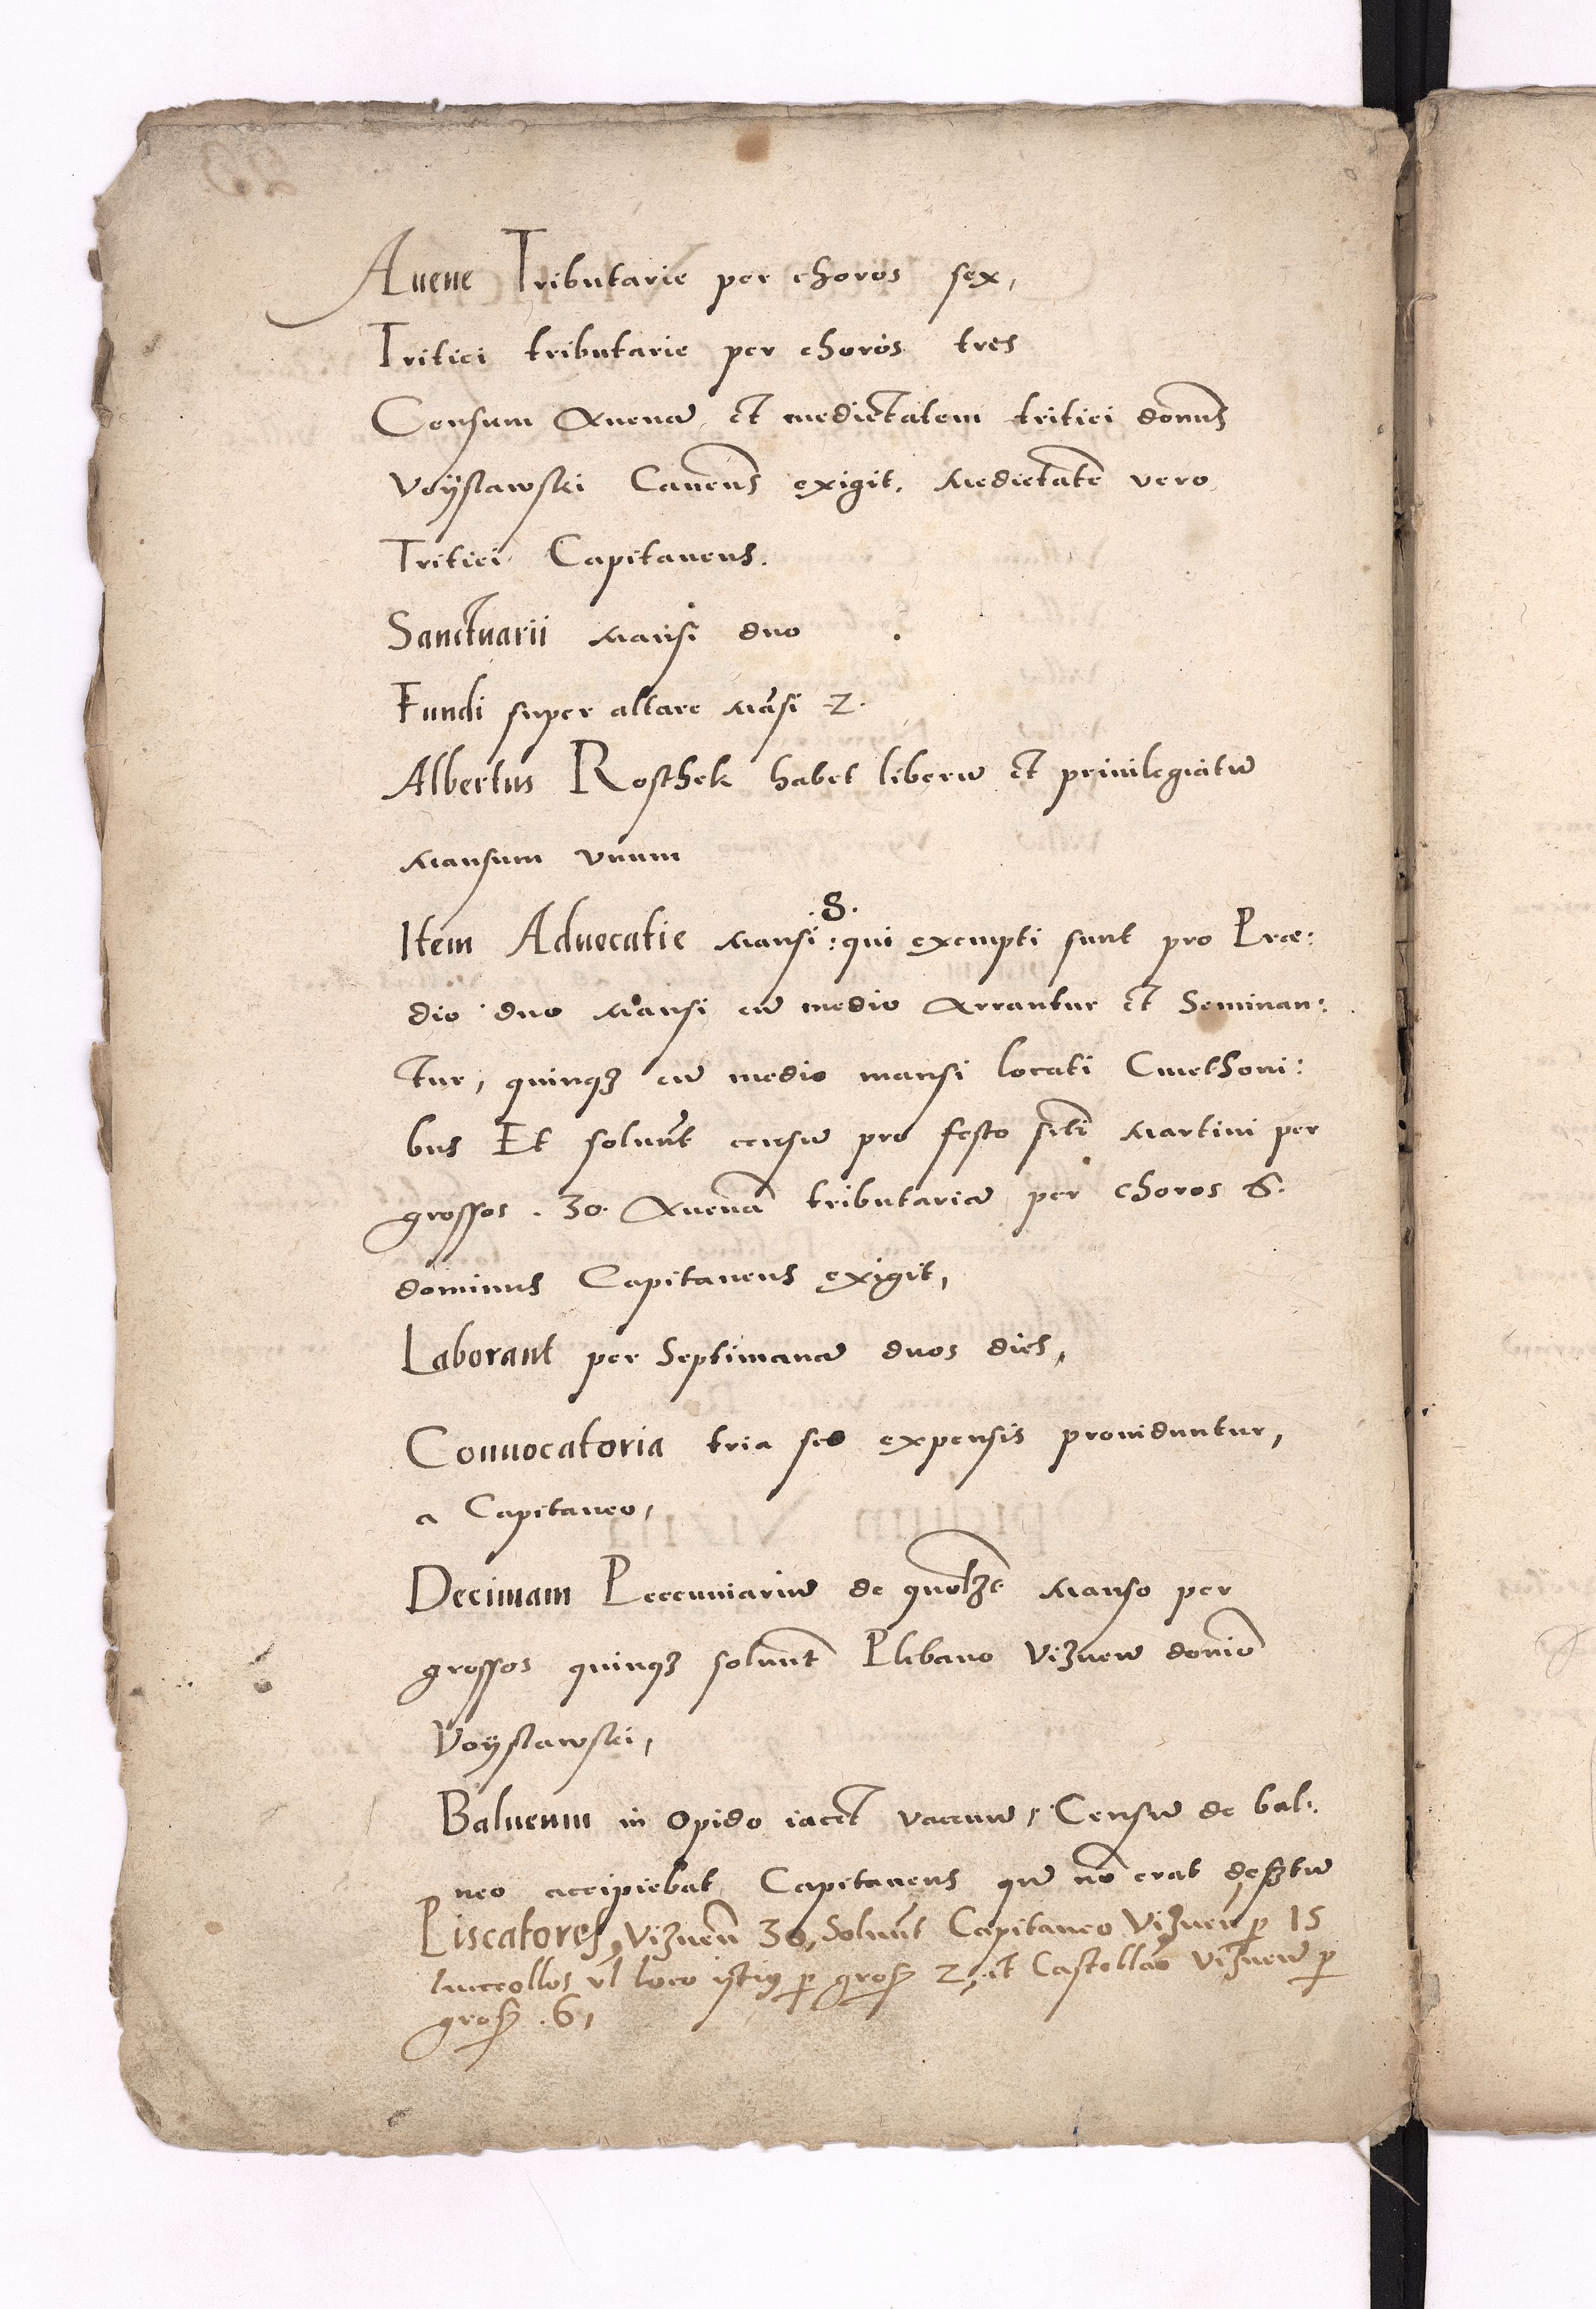 Auene Tributarie per choros sex,
Tritici tributarie per choros tres
Censum Auenā et medietatem tritici domūs
Voÿslawski Caneus exigit. Medietatē vero
Tritici Capitaneus.
Sanctuarii Mansi duo
Fundi super altare Mansi 2.
Albertus Roschek habet liberū et priuilegiatū
Mansum vnum
8.
Item Aduocatie Mansi : qui exempti sunt pro Præ:
dio duo Mansi cū medio Arrantur et Seminan:
tur, quinqȝ cū medio mansi locati Cmethoni:
bus Et soluūt censū pro festo scti Martini per
grossos . 30. Auenā tributariā per choros 6.
dominus Capitaneus exigit,
Laborant per Septimanā duos dies,
Conuocatoria tria sed expensis prouiduntur,
a Capitaneo,
Decimam Peccuniariū de quolȝt Manso per
grossos quinqȝ soluūt Plebano Viznen domīo
Voyslawski,
Balneum in Opido iacet vacuum, Censū de bal:
neo accipiebat Capitaneus qū nō erat desertū
Piscatores Viznen 30, Soluūt Capitaneo Viznen ꝑ 15
lucceollos vl loco istiꝰ ꝑ gross 2, et Castellāo Viznen ꝑ
gross .6,